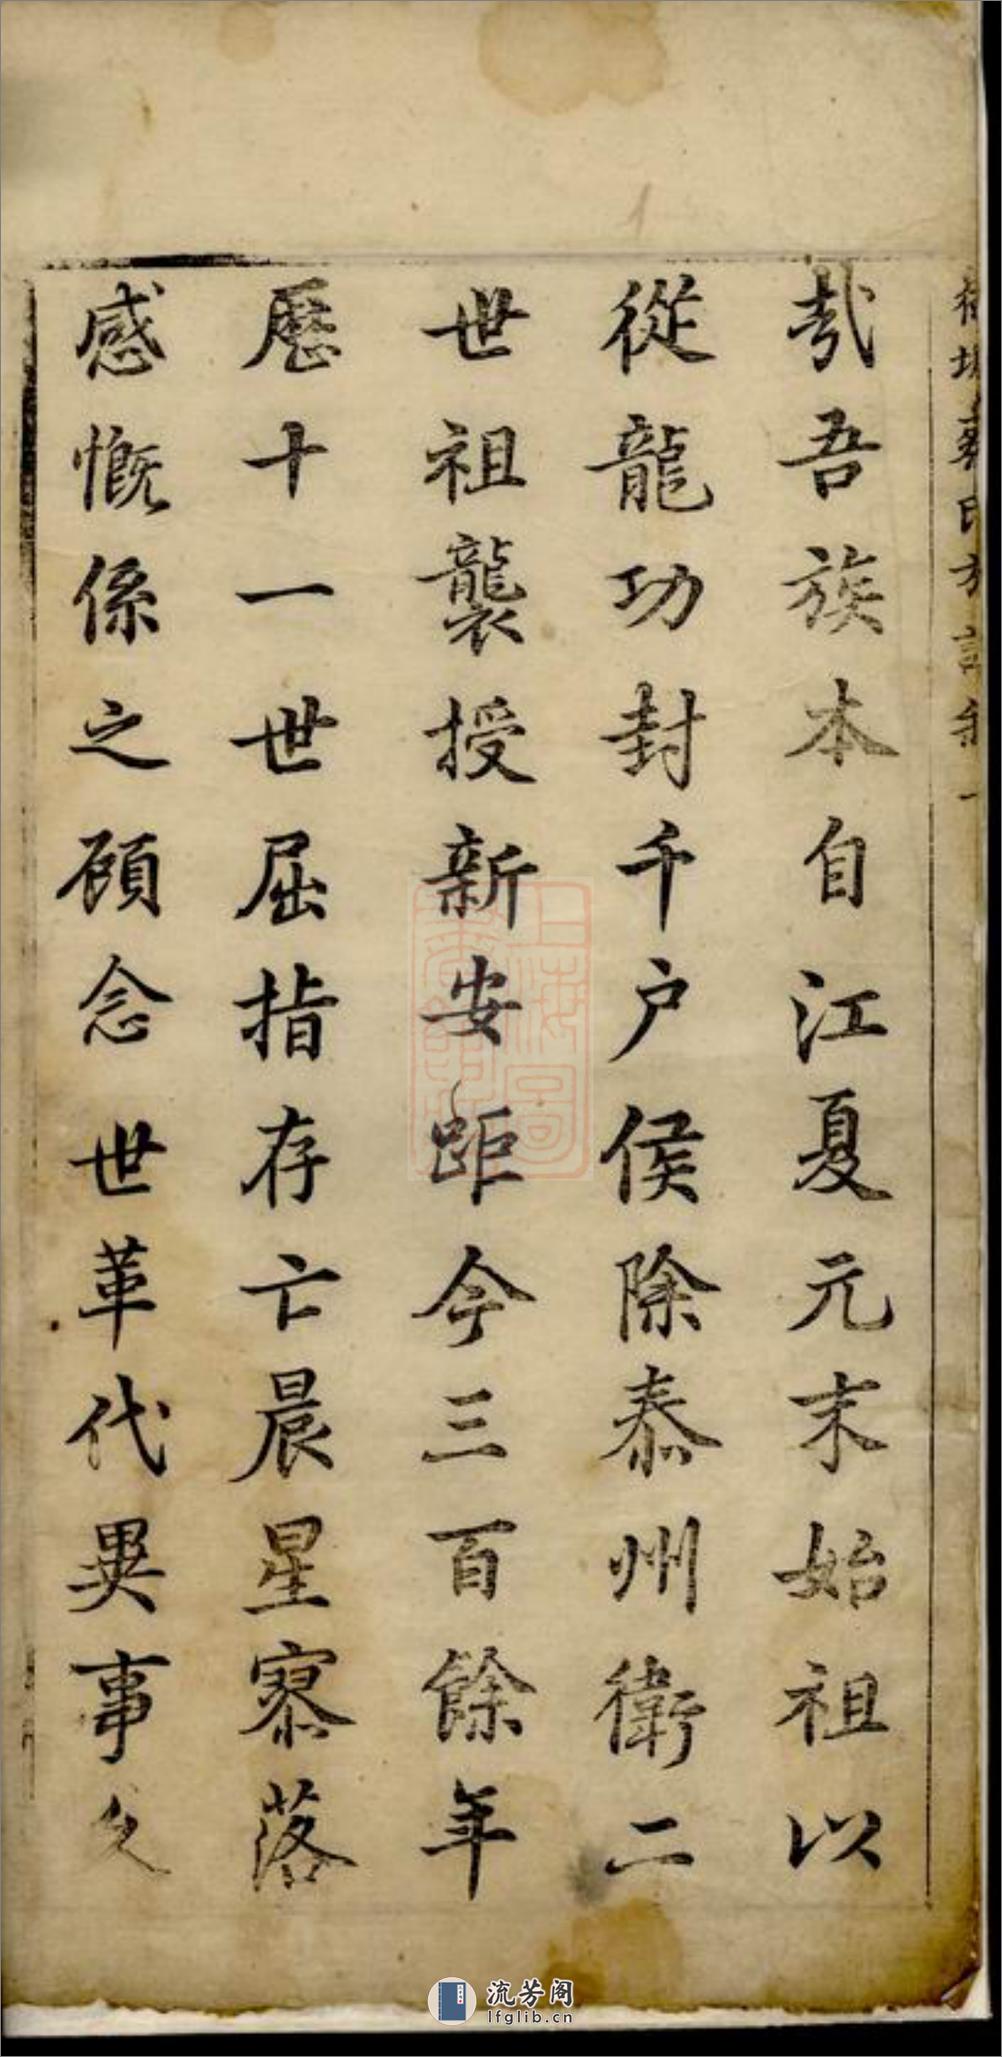 氏族譜
一
哉吾族本自江夏元末始祖以
從龍功封千户侯除泰州衛二
世祖襲授新安距今三百餘年
歷十一世屈指存亡晨星寥落
感慨係之顧念世革代異事久
上海圖
流芳阁
lfglib.cn